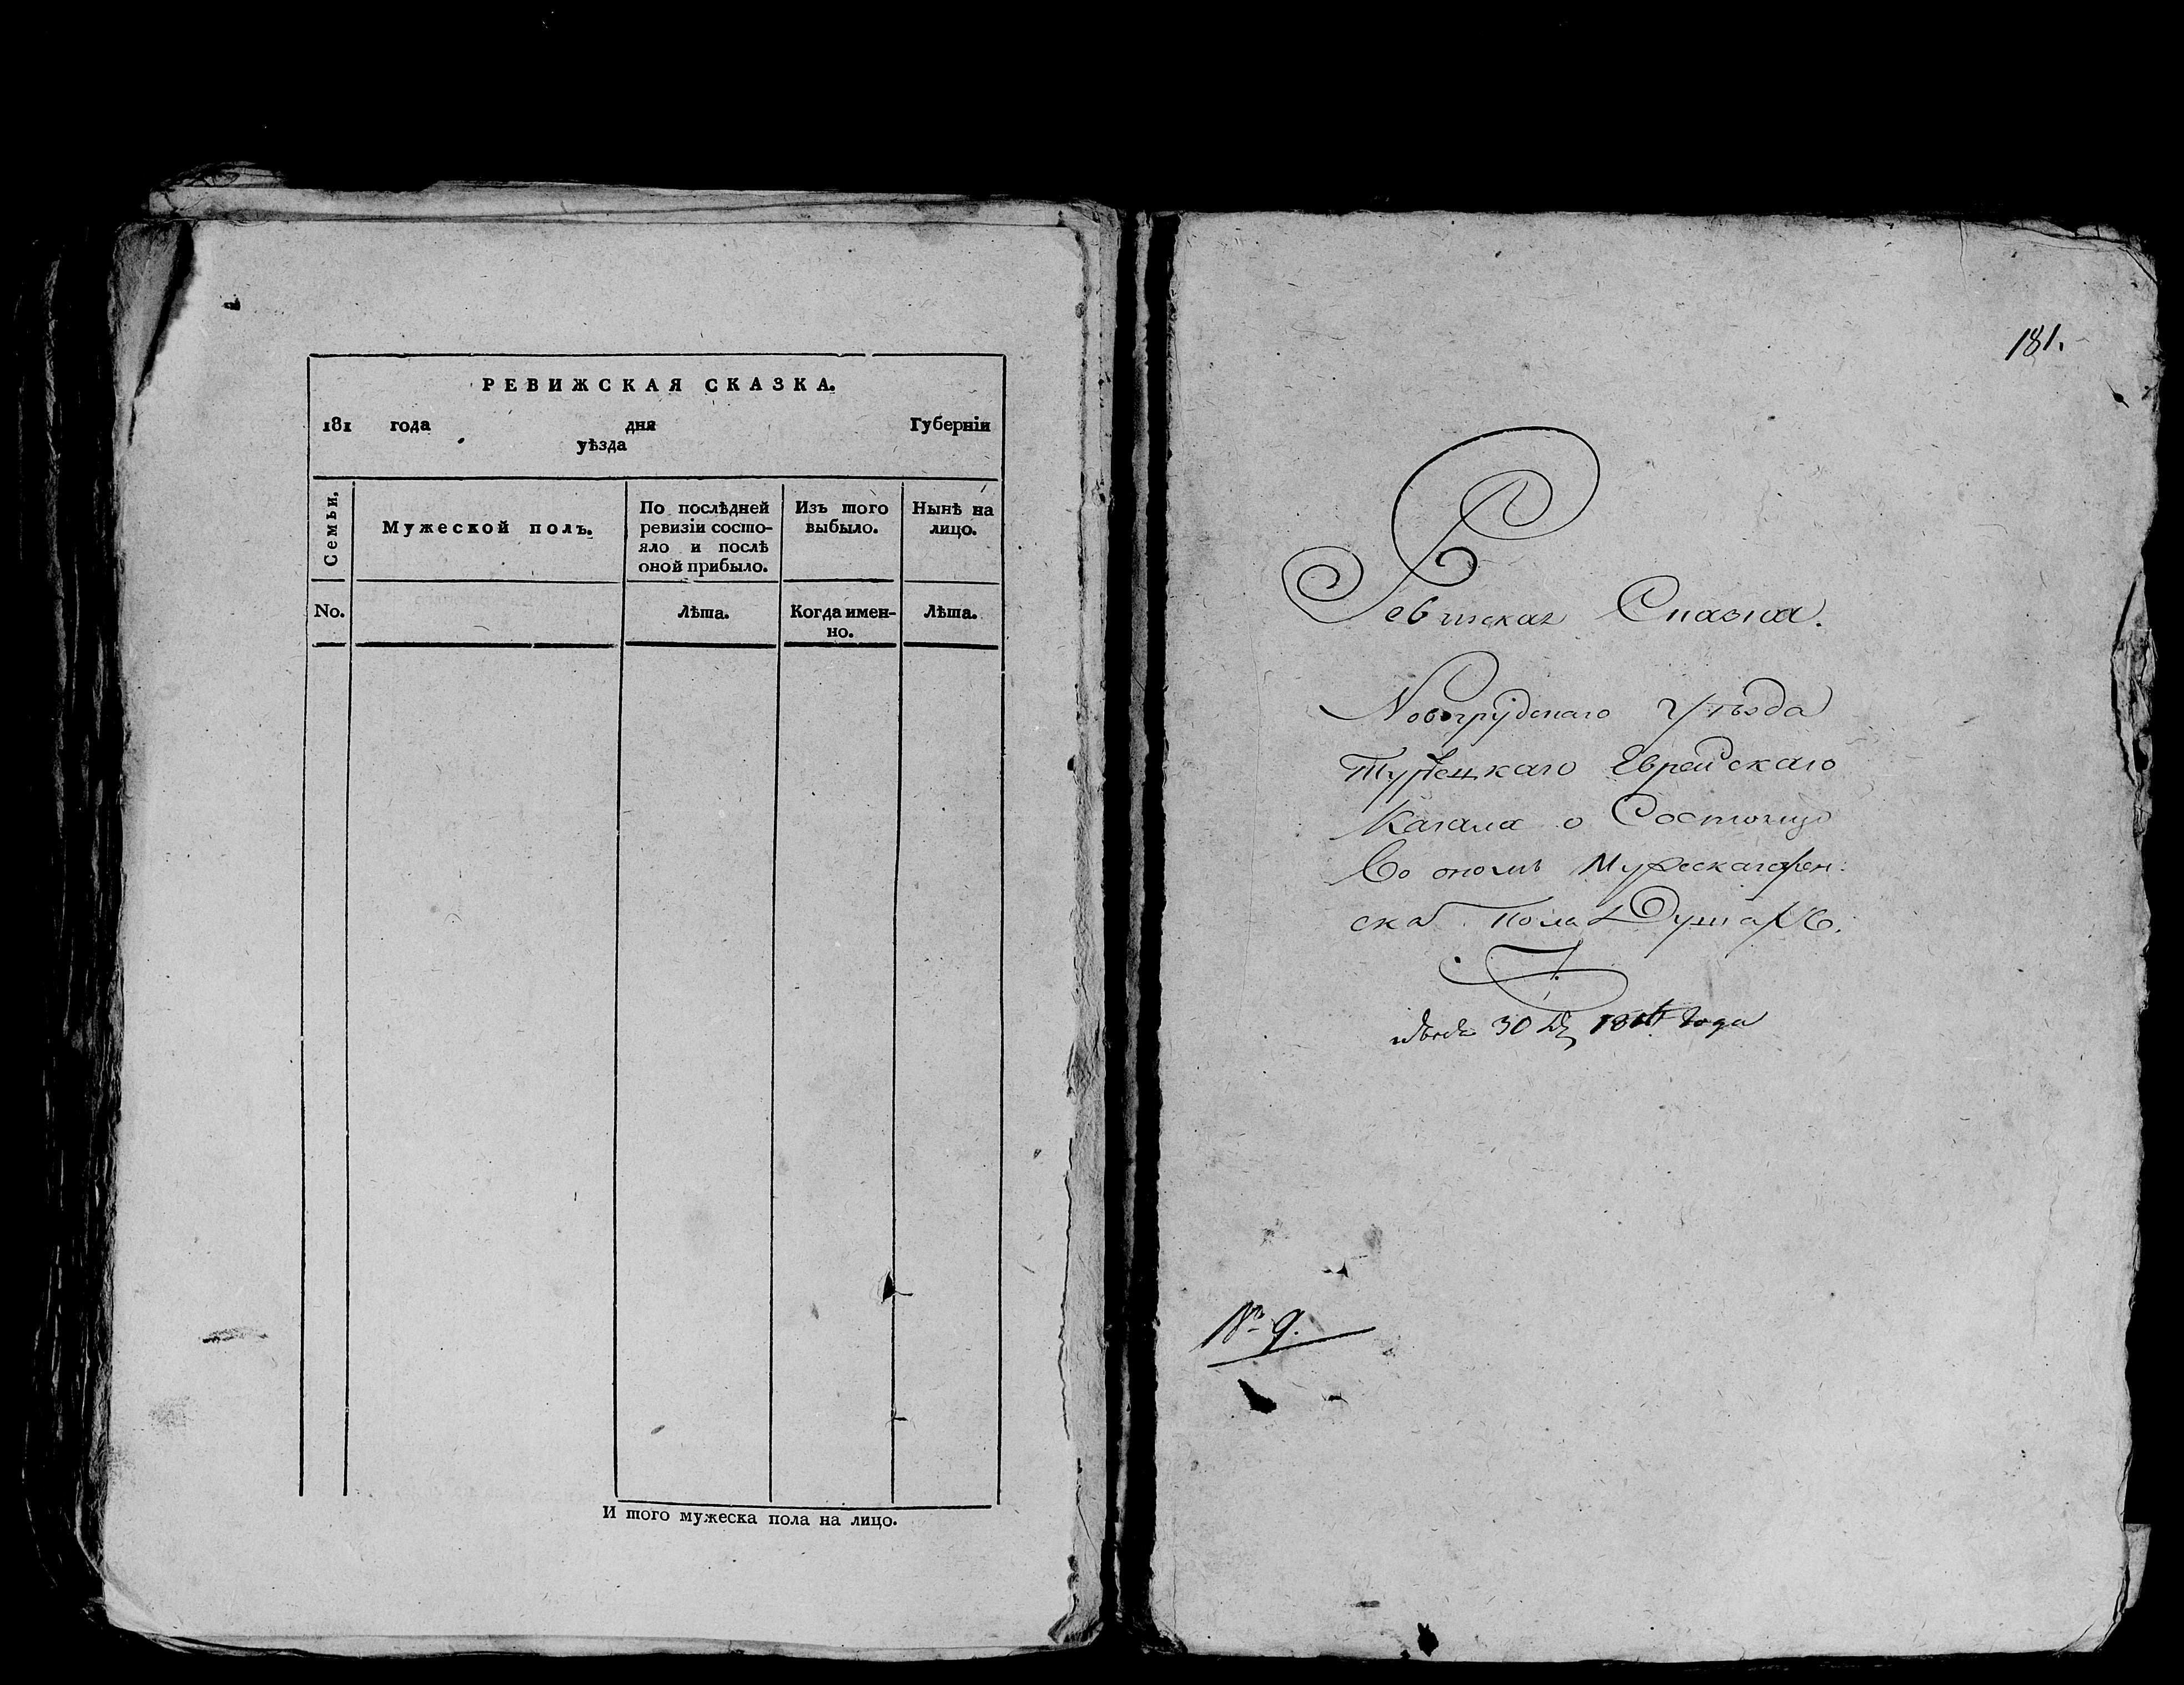 РЕВИЖСКАЯ СКАЗКА.
181 года дня Губерніи
уѣзда
Семьи.
Мужеской полъ.
По послѣдней
ревизіи состо-
яло и послѣ
оной прибыло.
Изъ того
выбыло.
Нынѣ на
лицо.
No.
Лѣта.
Когда имен-
но.
Лѣта.
И того мужеска пола на лицо.
181.
Ревижская Сказка.
Новогрудскаго Уѣзда
Турецкаго Еврейскаго
Кагала о Состоящихъ
Во ономъ Мужескаго жен:
ска пола Душахъ.
30 года
№ 9.